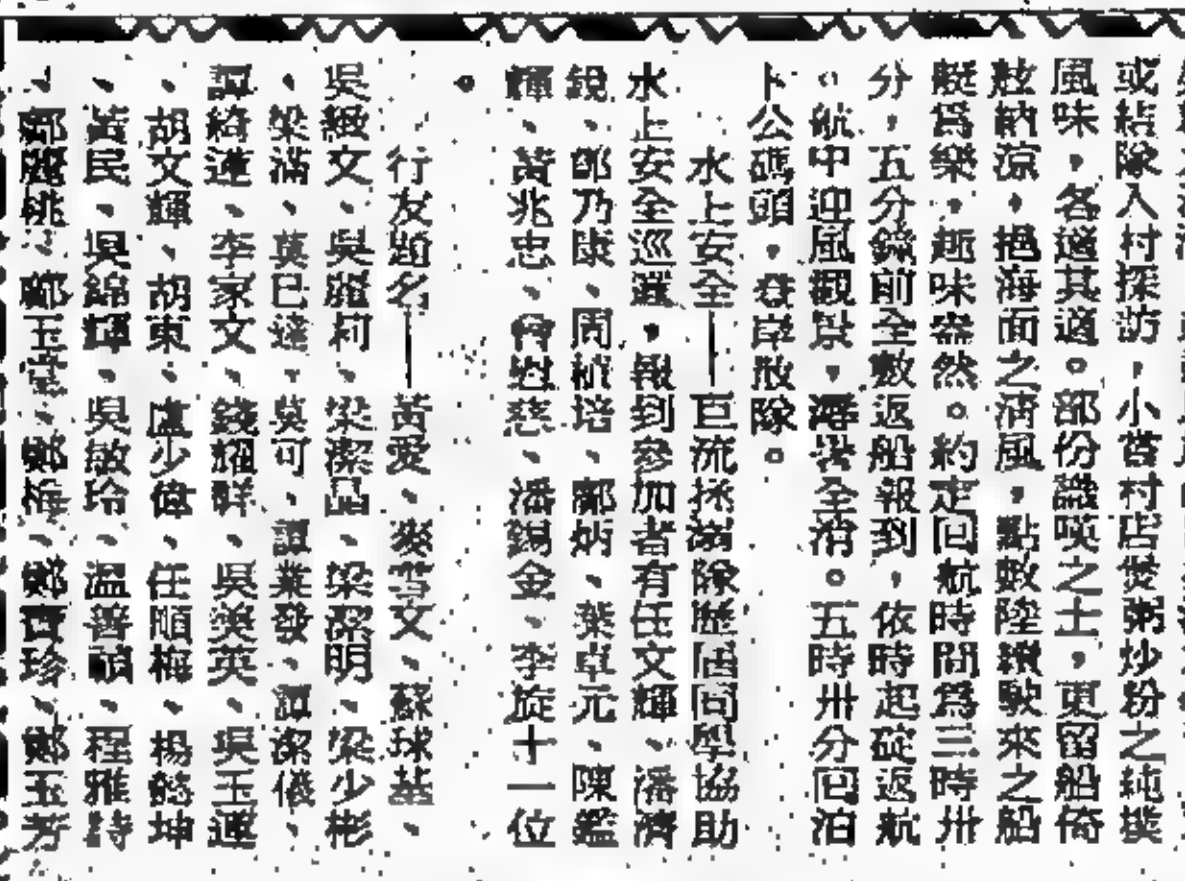 或結隊入村探訪，小苔村店煲粥炒粉之純撲
風味，各適其適。部份識嘆之士，更留船倚
舷納涼，挹海面之清風，點數陸續駛來之船
艇爲樂，趣味盎然。約定回航時間爲三時卅
分，五分鐘前全數返船報到，依時起碇返航
。航中迎風觀景，溽暑全消。五時卅分囘泊
卜公碼頭，登岸散隊。
水上安全——巨流拯溺隊歷屆同學協助
水上安全巡邏，報到參加者有任文輝、潘濟
鏡、鄧乃康、周楨培、鄺炳、葉卓元、陳鑑
輝、黃兆忠、慈、潘錫金、李旋十一位
。
行友題名——黃愛、麥雪文、蘇球基、
吳緞文、吳麗莉、梁潔晶、梁潔明、梁少彬
、梁滿、莫巳達、莫可、譚業發、譚潔儀、
譚綺蓮、李家文、錢耀群、吳英英、吳玉蓮
、胡文輝、胡東、盧少偉、任順梅、楊懿坤
、黃民、吳錦輝、吳敏玲、溫善、程雅詩
、鄺麗桃、鄺玉、鄭梅、鄭寶珍、鄭玉芳